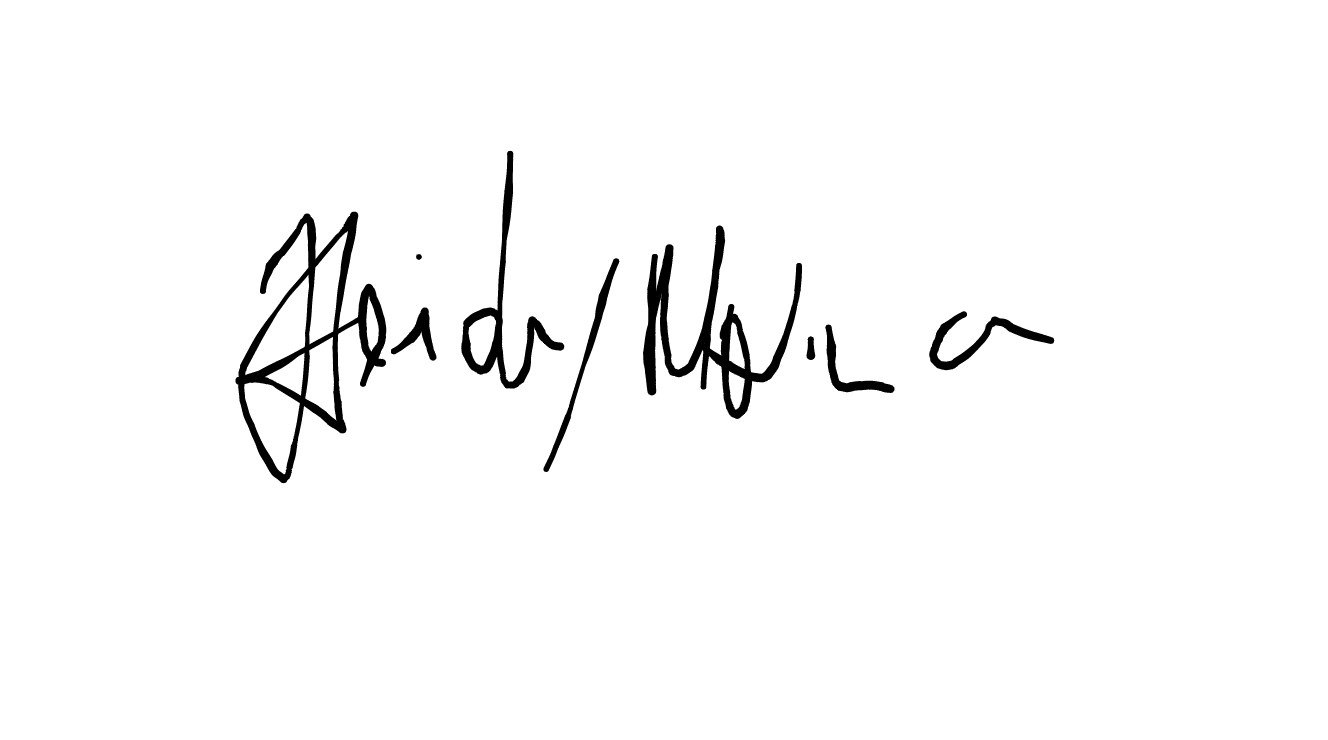 Heidy Molina